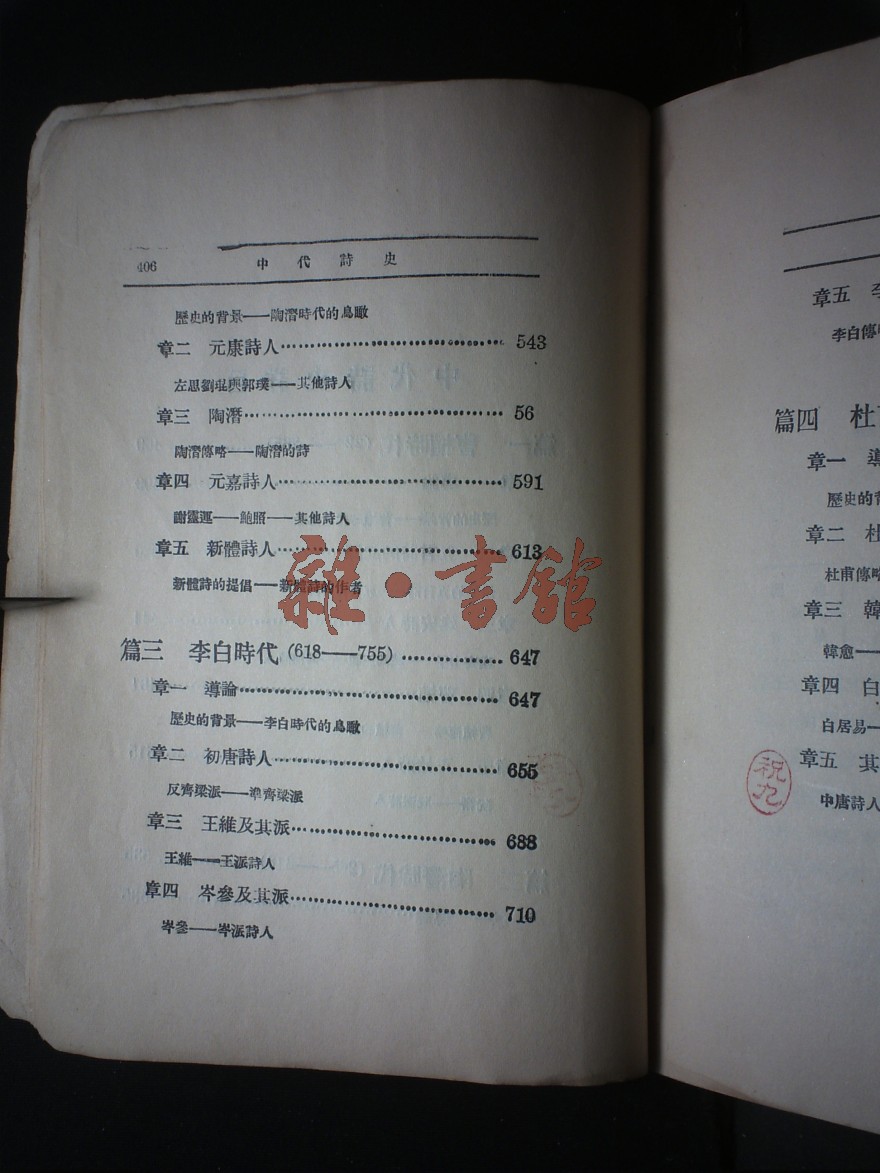 406 中代詩史
歷史的背景——陶潛時代的鳥瞰
章二 元康詩人 543
左思劉琨與郭璞——其他詩人
章三 陶潛 56
陶潛傳略——陶潛的詩
章四 元嘉詩人 591
謝靈運——鮑照——其他詩人
章五 新體詩人 613
新體詩的提倡——新體詩的作者
篇三 李白時代(618——755) 647
章一 導論 647
歷史的背景——李白時代的鳥瞰
章二 初唐詩人 655
反齊梁派——準齊梁派
章三 王維及其派 688
王維——王派詩人
章四 岑參及其派 710
岑參——岑派詩人
雜·書館
章五 李
李白傳略
篇四 杜
章一 導
歷史的背
章二 杜
杜甫傳略
章三 韓
韓愈——
章四 白
白居易—
章五 其
中唐詩人
祝九